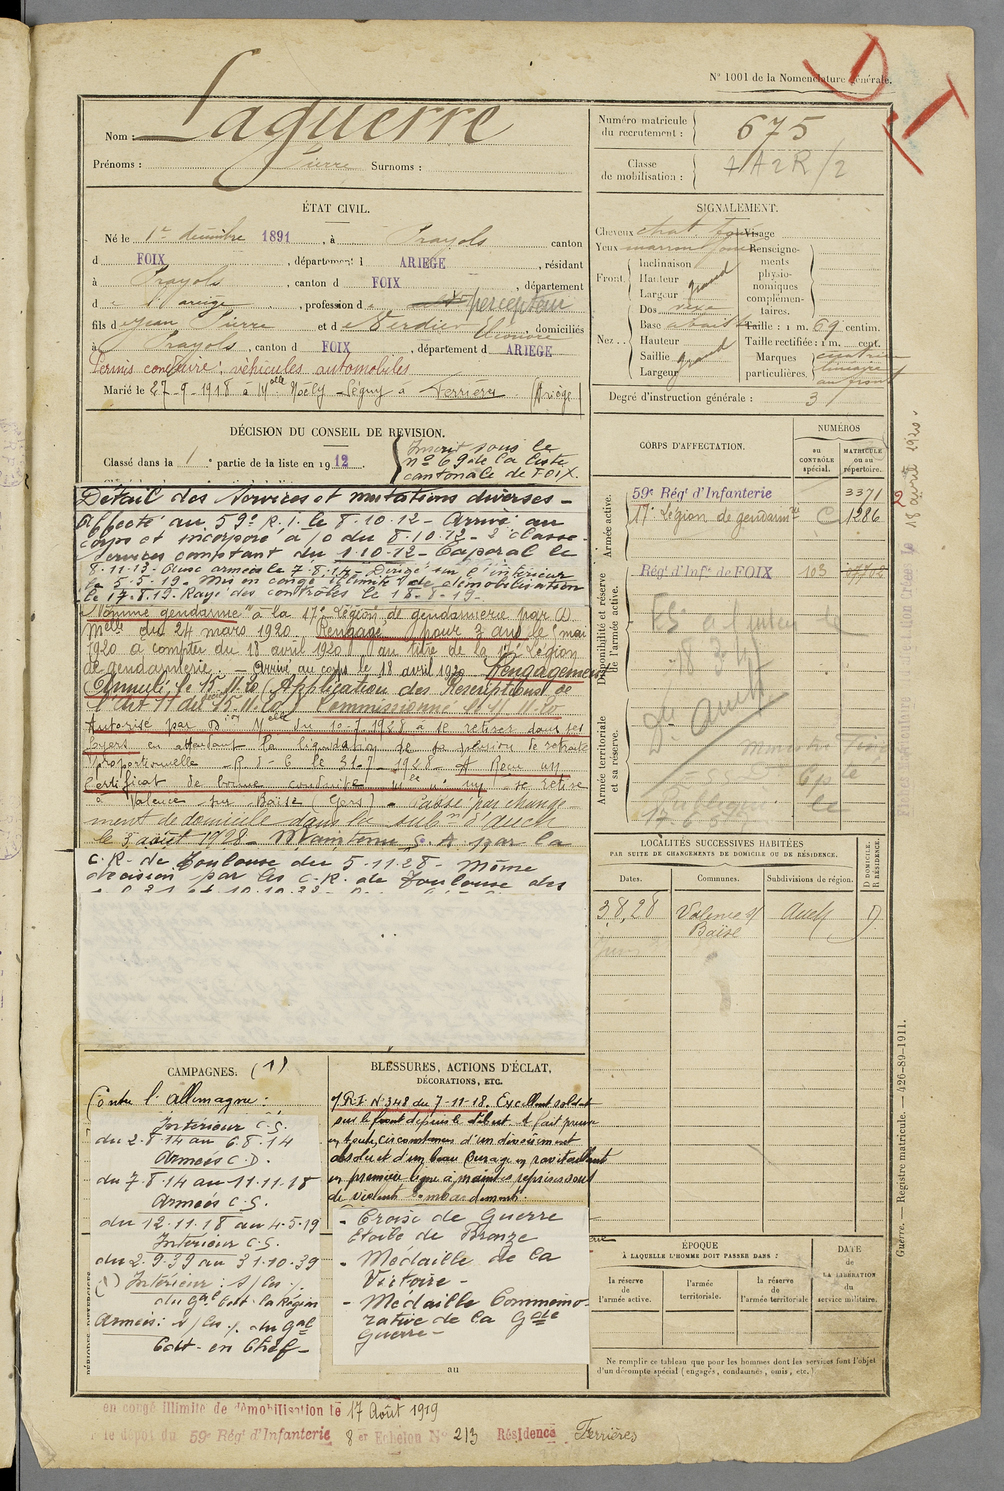 N° 1001 de la Nomenclature générale.
Nom : Laguerre
Prénoms : Pierre Surnoms :
Numéro matricule du recrutement : 675
Classe de mobilisation : /2
ÉTAT CIVIL.
Né le 1er décembre 1891, à Prayols canton
d FOIX, département d ARIEGE, résidant
à Prayols, canton d FOIX, département
d e l'ariège, profession d e percepteur
fils d e Jean Pierre et d e Verdier Eléonore, domiciliés
à Prayols, canton d FOIX, département d ARIEGE
Permis conduire véhicules automobiles
Marié le 27-9-1918 à Melle Noëly Ségny à Ferrières (Ariège)
SIGNALEMENT.
Cheveux chat. Visage
Yeux marron
Renseignements physionomiques complémentaires.
Front.
Inclinaison
Hauteur grand
Largeur
Nez.
Dos
Base
Hauteur
Saillie grand
Largeur
Taille : 1 m. 69 centim.
Taille rectifiée : 1 m. cent.
Marques particulières. cicatrice linéaire au front
Degré d'instruction générale : 3
DÉCISION DU CONSEIL DE REVISION.
Classé dans la 1e partie de la liste en 1912.
Inscrit sous le
n° 69 de la liste
cantonale de FOIX.
Détail des Services et mutations diverses -
Affecté au 59e R.I. le 8.10.12 - Arrivé au
corps et incorporé à /c du 8.10.12 - 2e classe -
Services comptant du 1.10.12 - Caporal le
8.11.13 - Aux armées le 7.8.14 - Dirigé sur l'intérieur
le 5.5.19 - Mis en congé illimité de démobilisation
le 17.8.19. Rayé des contrôles le 18-8-19 -
"Nommé gendarme" à la 17e Légion de gendarmerie par D.
Melle du 24 mars 1920. Rengagé pour 3 ans le mai
1920 à compter du 18 avril 1920 au titre de la 17e Légion
de gendarmerie. - Arrivé au corps le 18 avril 1920. Rengagement
Annulé le 15.11.20 (Application des Prescriptions de
l'art 11 du 15.11.20) Commissionné le 11.20
Autorisé par Don Melle du 10.7.1928 à se retirer dans ses
foyers en attendant la liquidation de sa pension de retraite
proportionnelle - R d C le 31-7-1928 - A Reçu un
Certificat de bonne conduite se retire
à Valence sur Baïse (Gers) - Passé par change-
ment de domicile dans la subon d'auch
le 3 août 1928 - Maintenu S.A. par la
C.R. de Toulouse du 5-11-28 - Même
décision par les C.R. de Toulouse des
CORPS D'AFFECTATION.
NUMÉROS
au CONTRÔLE spécial.
MATRICULE ou au répertoire.
Armée active.
59e Régt d'Infanterie 3371
17e Légion de gendarmrie C 1286
Disponibilité et réserve de l'armée active.
Régt d'Infie de FOIX 103
Armée territoriale et sa réserve.
Don auch
18 avril 1920.
LOCALITÉS SUCCESSIVES HABITÉES
PAR SUITE DE CHANGEMENTS DE DOMICILE OU DE RÉSIDENCE.
Dates. Communes. Subdivisions de région. D DOMICILE. R RÉSIDENCE.
3.8.28 Valence s/ Baïse Auch D
CAMPAGNES. (1)
Contre l'allemagne :
Intérieur C.S.
du 2-8-14 au 6-8-14
Armées C.D.
du 7-8-14 au 11-11-18
Armées C.S.
du 12-11-18 au 4-5-19
Intérieur C.S.
du 2-9-39 au 31-10-39
(1) Intérieur :
du Gal Cdt la Région
Armées : du Gal
Cdt - en Chef -
BLESSURES, ACTIONS D'ÉCLAT,
DÉCORATIONS, ETC.
O.R.I. N° 348 du 7-11-18. Excellent soldat
sur le front depuis le début. A fait preuve
en toutes circonstances d'un dévouement
absolu et d'un beau courage en ravitaillant
en première ligne à maintes reprises sous
de violents bombardements.
- Croix de Guerre
Etoile de Bronze
- Médaille de la
Victoire -
- Médaille Commémo-
rative de la Gde
Guerre -
au
ÉPOQUE
À LAQUELLE L'HOMME DOIT PASSER DANS :
la réserve de l'armée active.
l'armée territoriale.
la réserve de l'armée territoriale
DATE de LA LIBÉRATION du service militaire.
Ne remplir ce tableau que pour les hommes dont les services font l'objet
d'un décompte spécial (engagés, condamnés, omis, etc.).
Guerre. — Registre matricule. — 426-89-1911.
en congé illimité de démobilisation le 17 Août 1919
le dépôt du 59e Régt d'Infanterie 8 e Echelon N° 213 Résidence Ferrières